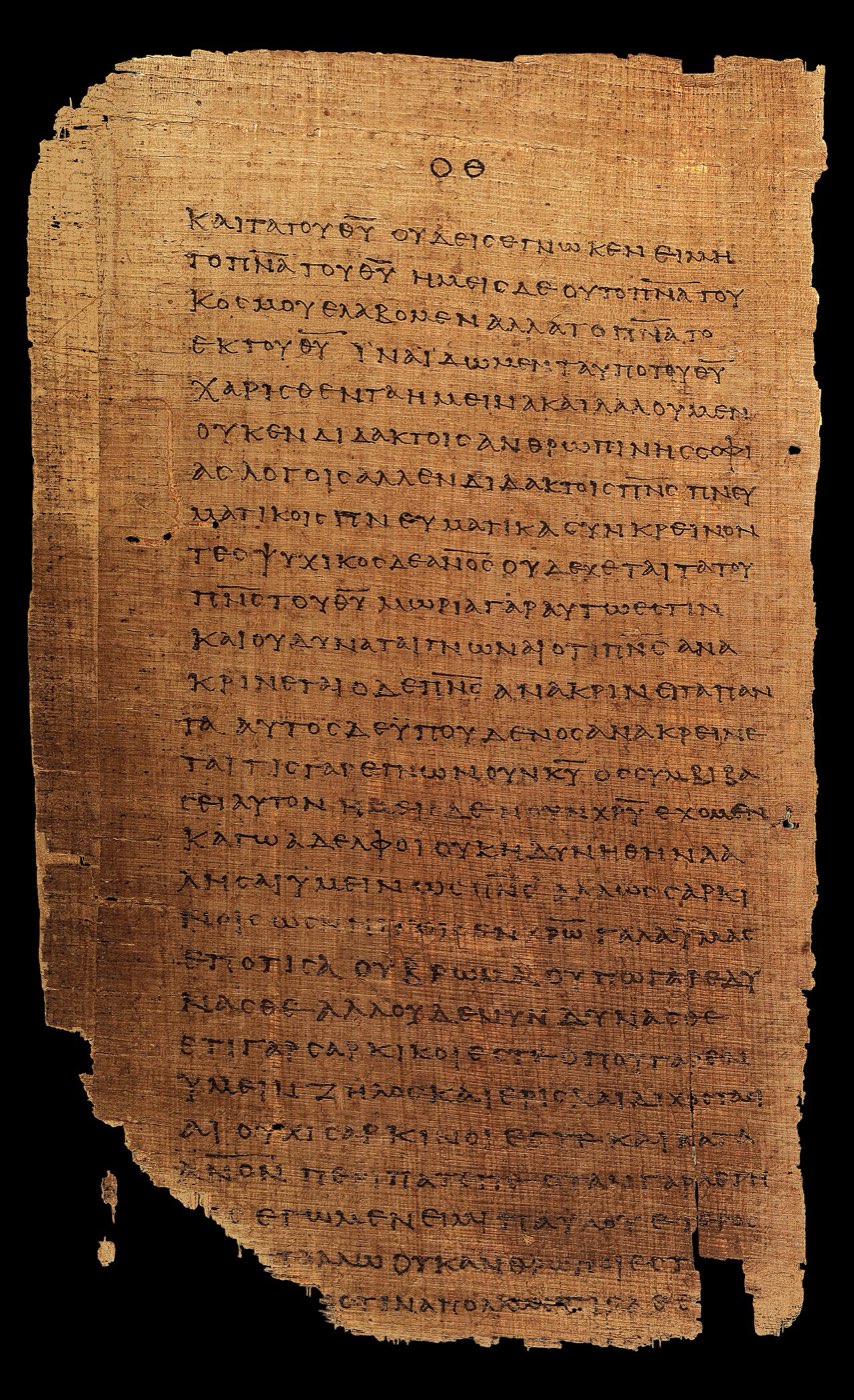 ΟΘ
ΚΑΙΤΑΤΟΥΘ̅Υ̅ ΟΥΔΕΙϹΕΓΝΩΚΕΝΕΙΜΗ
ΤΟΠ̅Ν̅Α̅ΤΟΥΘ̅Υ̅ ΗΜΕΙϹΔΕΟΥΤΟΠ̅Ν̅Α̅ΤΟΥ
ΚΟϹΜΟΥΕΛΑΒΟΜΕΝΑΛΛΑΤΟΠ̅Ν̅Α̅ΤΟ
ΕΚΤΟΥΘ̅Υ̅ ΪΝΑΙΔΩΜΕΝΤΑΥΠΟΤΟΥΘ̅Υ̅
ΧΑΡΙϹΘΕΝΤΑΗΜΕΙΝΑΚΑΙΛΑΛΟΥΜΕΝ
ΟΥΚΕΝΔΙΔΑΚΤΟΙϹΑΝΘΡΩΠΙΝΗϹϹΟΦΙ
ΑϹΛΟΓΟΙϹΑΛΛΕΝΔΙΔΑΚΤΟΙϹΠ̅Ν̅Ϲ̅ΠΝΕΥ
ΜΑΤΙΚΟΙϹΠΝΕΥΜΑΤΙΚΑϹΥΝΚΡΕΙΝΟΝ
ΤΕϹΨΥΧΙΚΟϹΔΕΑ̅Ν̅Ο̅Ϲ̅ΟΥΔΕΧΕΤΑΙΤΑΤΟΥ
Π̅Ν̅Ϲ̅ΤΟΥΘ̅Υ̅ ΜΩΡΙΑΓΑΡΑΥΤΩΕϹΤΙΝ
ΚΑΙΟΥΔΥΝΑΤΑΙΓΝΩΝΑΙΟΤΙΠ̅Ν̅Ϲ̅ΑΝΑ
ΚΡΙΝΕΤΑΙΟΔΕΠ̅Ν̅Ϲ̅ΑΝΑΚΡΙΝΕΙΤΑΠΑΝ
ΤΑ ΑΥΤΟϹΔΕΫΠΟΥΔΕΝΟϹΑΝΑΚΡΕΙΝΕ
ΤΑΙΤΙϹΓΑΡΕΓΝΩΝΟΥΝΚ̅Υ̅ ΟϹϹΥΜΒΙΒΑ
ϹΕΙΑΥΤΟΝ ΗΜΕΙϹΔΕΝΟΥΝΧ̅Ρ̅Υ̅ΕΧΟΜΕΝ
ΚΑΓΩΑΔΕΛΦΟΙΟΥΚΗΔΥΝΗΘΗΝΛΑ
ΛΗϹΑΙΫΜΕΙΝΩϹΠ̅Ν̅Ϲ̅ΑΛΛΩϹϹΑΡΚΙ
ΝΟΙϹΩϹΝΗΠΙΟΙϹΕΝΧ̅Ρ̅Ω̅ΓΑΛΑΫΜΑϹ
ΕΠΟΤΙϹΑ ΟΥΒΡΩΜΑΟΥΠΩΓΑΡΕΔΥ
ΝΑϹΘΕ ΑΛΛΟΥΔΕΝΥΝΔΥΝΑϹΘΕ
ΕΤΙΓΑΡϹΑΡΚΙΚΟΙΕϹΤΕΟΠΟΥΓΑΡΕΝ
ΫΜΕΙΝΖΗΛΟϹΚΑΙΕΡΙϹΚΑΙΔΙΧΟϹΤΑϹΙ
ΑΙ ΟΥΧΙϹΑΡΚΙΝΟΙΕϹΤΕΚΑΙΚΑΤΑ
Α̅Ν̅Ο̅Ν̅ΠΕΡΙΠΑΤΕΙΤΕΟΤΑΝΓΑΡΛΕΓΗ
ΕΓΩΜΕΝΕΙΜΙΠΑΥΛΟΥΕΤΕΡΟϹ
ΑΠΟΛΛΩΟΥΚΑΝΘΡΩΠΟΙΕϹΤΕ